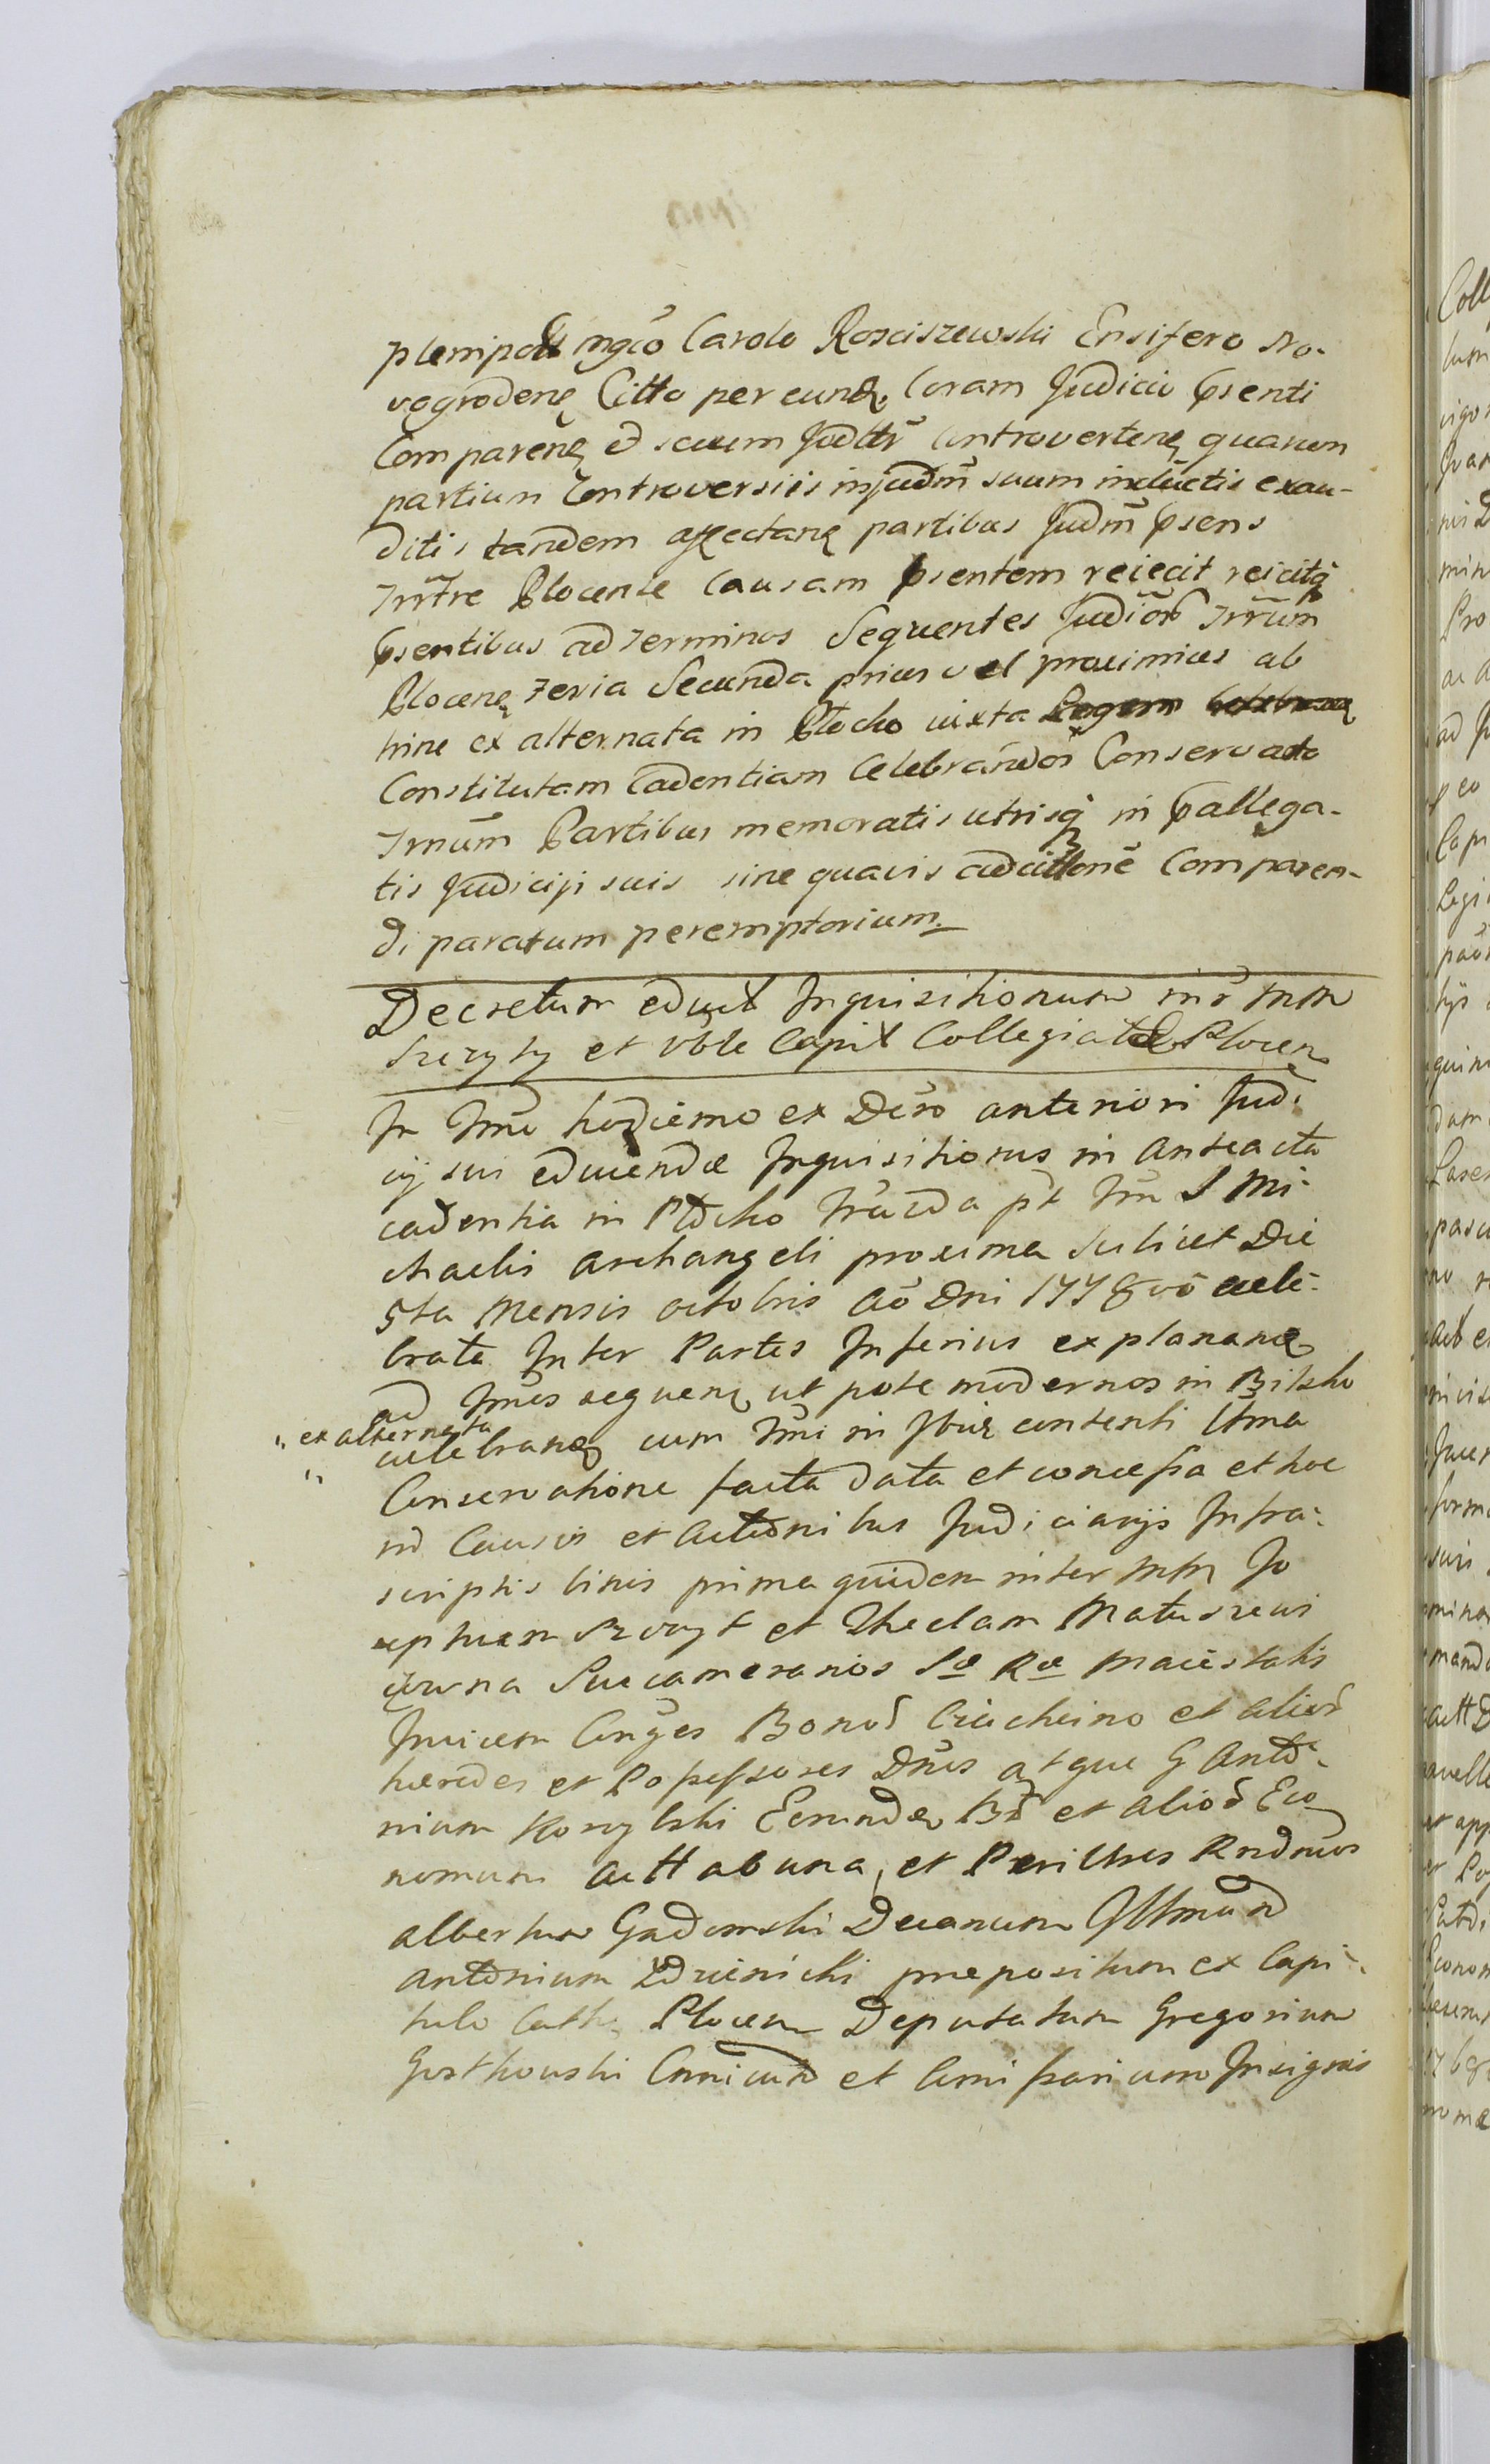 plenipott mgco Carolo Rosciszewski Ensifero No-
vogrodenę Citto per eundę Coram Judicio Psenti
Comparenę et secum Judttr Controvertenę quarum
partium Controversiis in Judm suum inductis exau-
ditis tandem affectanę partibus Judm Psens
Trrtre Plocense Causam Psentem reiecit reicitq
Psentibus ad Terminos Sequentes Judior Trrum
Plocenę Feria Secunda prius vel proximius ab
hinc ex alternata in Płocko iuxta Legem
Constitutam Cadentiam Celebrandor Conservato
Trnum Partibus memoratis utrisq in Pallega-
tis Judicij suis sine quavis adcittone Comparen-
di paratum peremptorium.
Decretum educt Inquisitionum intr MM
et Vble Capit Collegiatæ Plocen
In Tmo hodierno ex Decro anteriori Judi
cij sui educendæ Inquisitionis in anteacta
cadentia in Płocko pt Tm S Mi-
chaelis Archangeli proxima Scilicet Die
5ta Mensis octobris Ao Dni 1778vo cele-
brata Inter Partes Inferius explananę
ad Tmos sequenę ut pote modernos in Bilsko
" ex alternata
" celebranę cum Tmi in contenti Ultma
Conservatione facta data et concessa et hoc
in Causis et Actionibus Judiciarijs Infra-
scriptis binis prima quidem inter MM Jo
sephum et Theclam Matuszewi
Succamerarios Sæ Ræ Maiestatis
Invicem Conges Bonor et alior
hæredes et Possessores Dnos atque G Anto-
nium Eorundę Br et alior Eco
nomum Actt ab una, et Perilltres Rndmos
Albertum Gadomski Decanum Illmum
Antonium præpositum ex Capi-
tulo Cath Plocen Deputatum Gregorium
Gosthowski Canicum et Comissarium Insignis